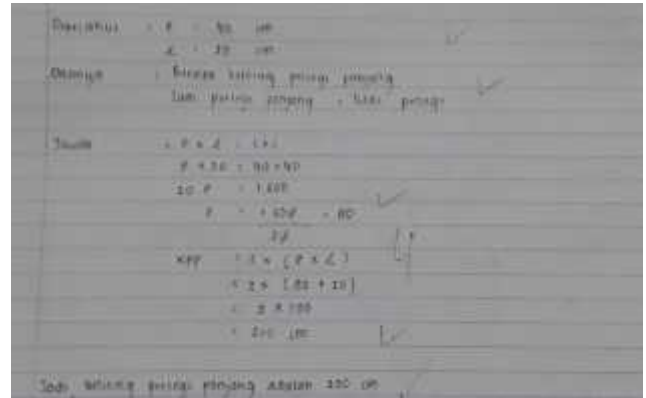 Diketahui : P : 40 cm
L : 20 cm
Ditanya : Berapa keliling persegi panjang
Luas persegi panjang = luas persegi
Jawab : P x L = s x s
P x 20 = 40 x 40
20 P = 1.600
P = 160 = 80
KPP = 2 x (P x L)
= 2 x (80 + 20)
= 2 x 100
= 200 cm
Jadi keliling persegi panjang adalah 200 cm